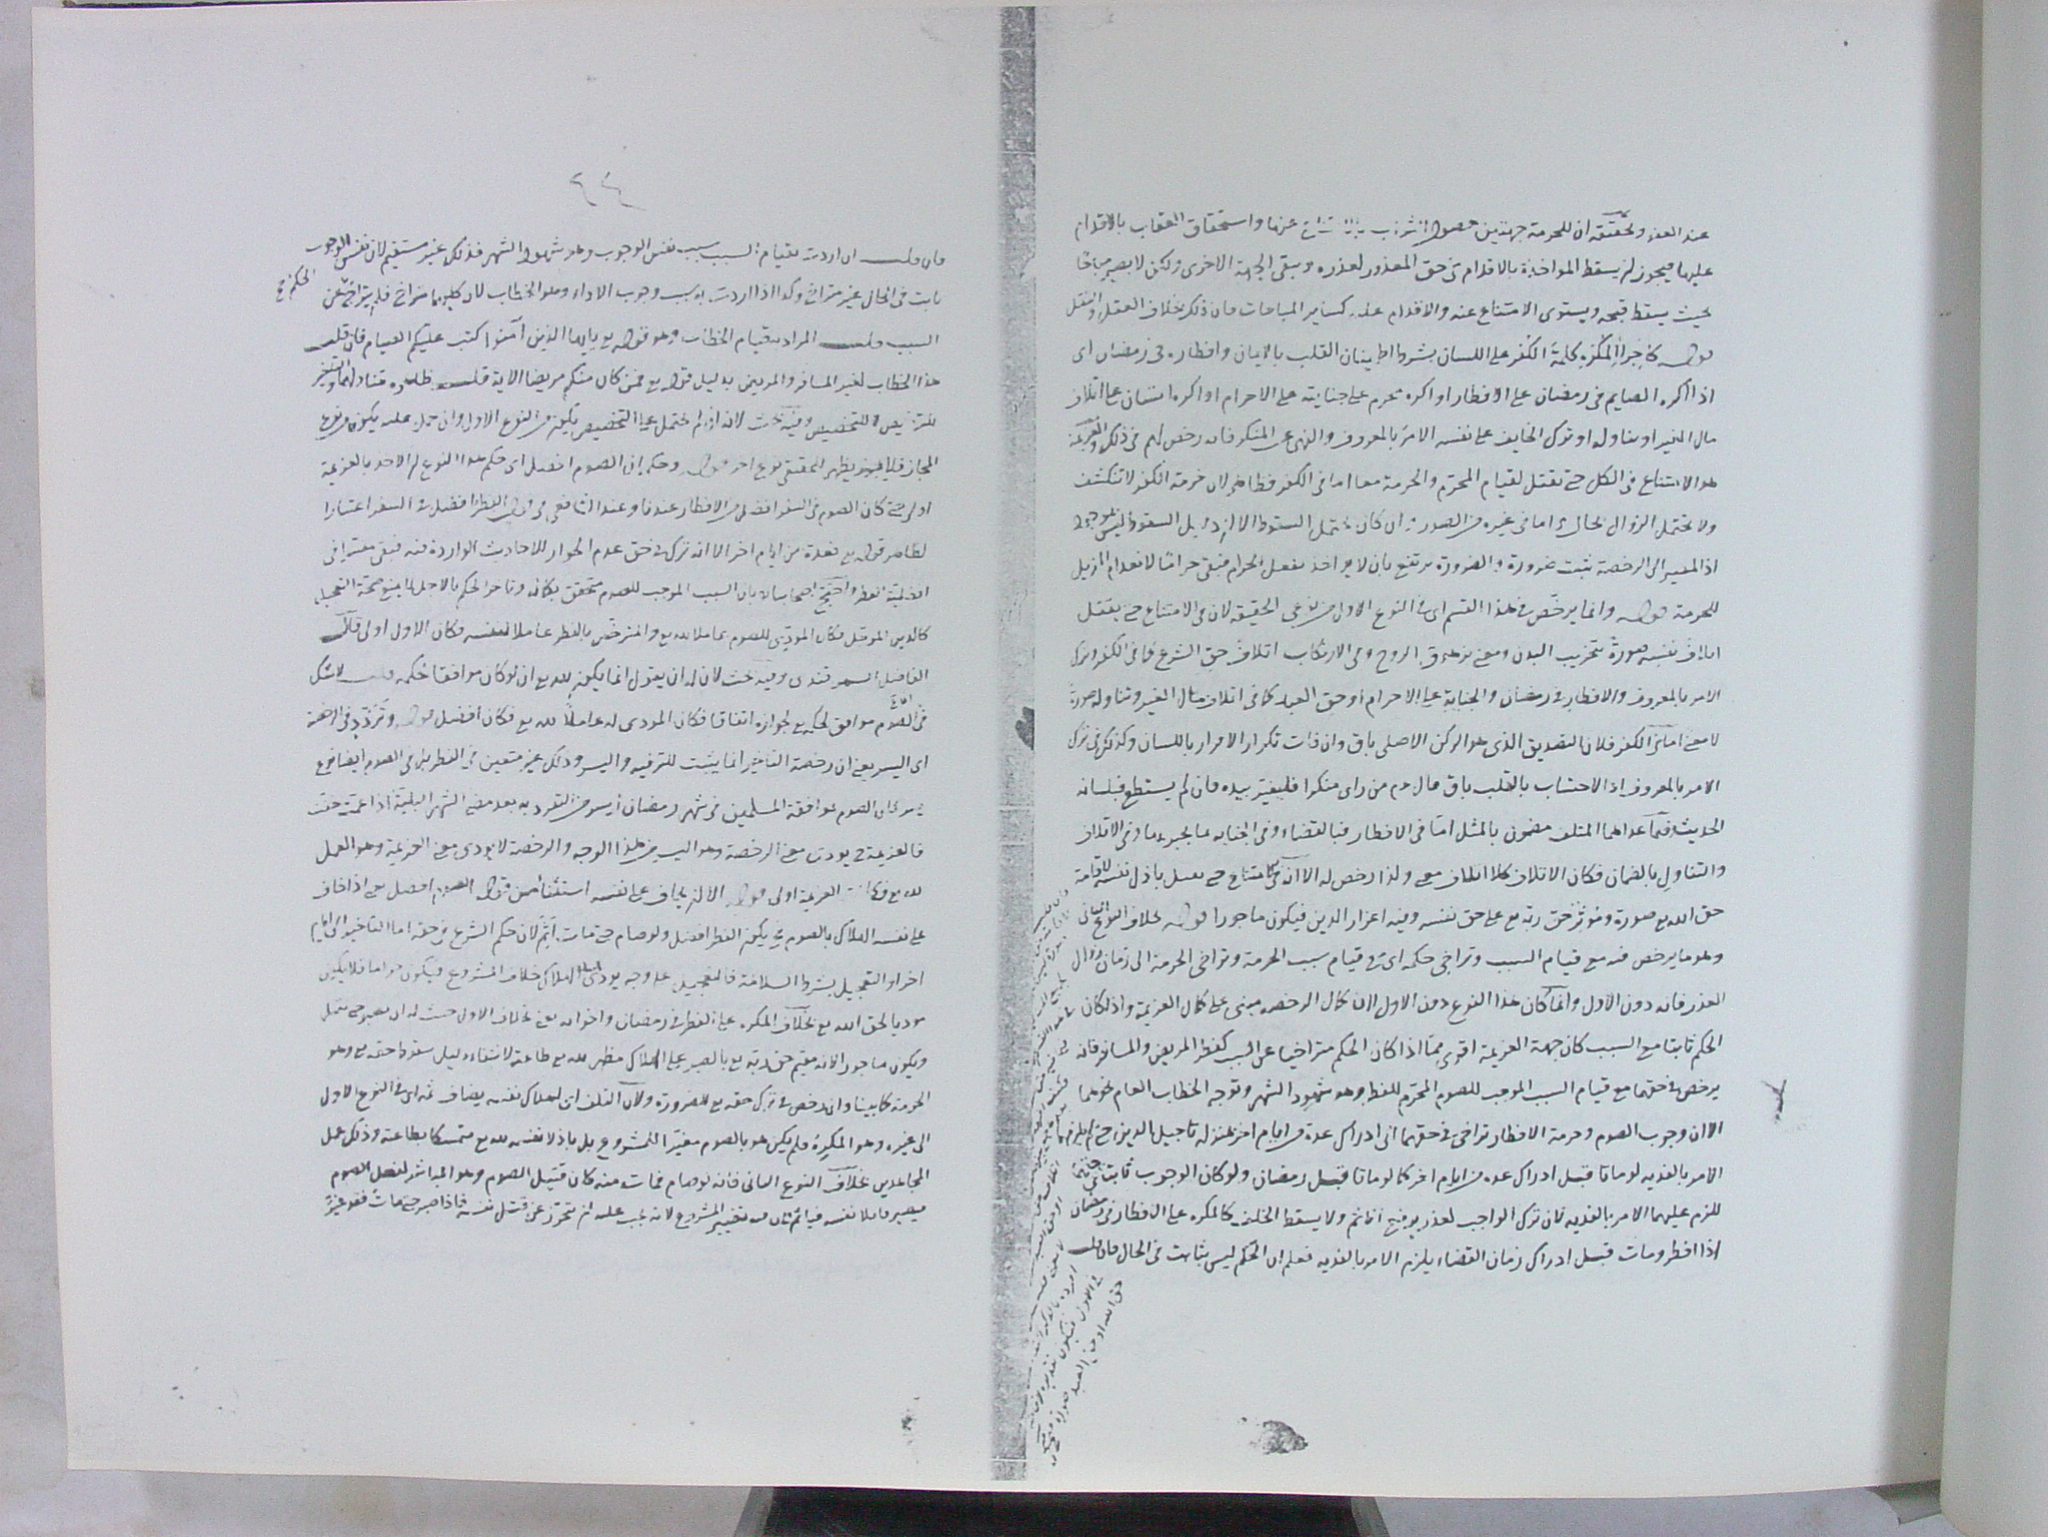 عند العفو وتحقيقه ان للحرمة جهتين حصول الثواب بالامتناع عنها واستحقاق العقاب بالاقدام
عليها فيجوز ان يسقط المواخذة بالاقدام في حق المعذور لعذره ويبقى الجهة الاخرى ولكن لا يصير مباحا
بحيث يسقط قبحه ويستوى الامتناع عنه والاقدام عليه كساير المباحات فان ذلك خلاف العقل والنقل
قوله كاجراء المكره كلمة الكفر على اللسان بشرط اطمينان القلب بالايمان وافطاره في رمضان اى
اذا اكره الصايم في رمضان على الافطار او اكره محرم على جنايته على الاحرام او اكره انسان على اتلاف
مال الغير او تناوله او ترك الخايف على نفسه الامر بالمعروف والنهى عن المنكر فانه رخص لهم في ذلك والعزيمة
هو الامتناع في الكل حتى يقتل لقيام المحرم والحرمة معا اما في الكفر فظاهر لان حرمة الكفر لا تنكشف
ولا يحتمل الزوال بحال واما في غيره من الصور وان كان يحتمل السقوط الا ان دليل السقوط ليس بموجود
اذ المصير الى الرخصة ثبت ضرورة والضرورة ترتفع بان لا يواخذ بفعل الحرام فبقى حراما لانعدام المزيل
للحرمة قوله وانما يرخص في هذا القسم اى في النوع الاول من نوعى الحقيقة لان في الامتناع حتى يقتل
اتلاف نفسه صورة بتخريب البدن ومعنى بزهوق الروح وفي الارتكاب اتلاف حق الشرع كما في الكفر وترك
الامر بالمعروف والافطار في رمضان والجناية على الاحرام او حق العبد كما في اتلاف مال الغير وتناوله صورة
لا معنى اما في الكفر فلان التصديق الذى هو الركن الاصلى باق وان فات تكرار الاقرار باللسان وكذلك في ترك
الامر بالمعروف اذ الاحتساب بالقلب باق قال عم من راى منكرا فليغير بيده فان لم يستطع فبلسانه
الحديث وفيما عداهما المتلف مضمون بالمثل اما في الافطار فبالقضاء وفي الجنايه بما يجبره واما في الاتلاف
والتناول بالضمان فكان الاتلاف كلا اتلاف معنى ولذا رخص له الا انه في الامتناع حتى يقتل باذل نفسه لاقامة
حق الله مع صورة وموثر حق ربه مع على حق نفسه وفيه اعزاز الدين فيكون ماجورا قوله بخلاف النوع الثاني
وهو ما يرخص فيه مع قيام السبب وتراخى حكمه اى في قيام سبب الحرمة وتراخى الحرمة الى زمان زوال
العذر فانه دون الاول وانما كان هذا النوع دون الاول لان كمال الرخصه مبنى على كمال العزيمة واذا كان
الحكم ثابتا مع السبب كان جهة العزيمة اقوى مما اذا كان الحكم متراخيا عن السبب كفطر المريض والمسافر فانه
يرخص في حقهما مع قيام السبب الموجب للصوم المحرم للفطر وهو شهود الشهر وتوجه الخطاب العام نحوهما
الا ان وجوب الصوم وحرمة الافطار تراخى في حقهما الى ادراك عدة من ايام اخر بمنزلة تاجيل الدين حتى لم يلزم
الامر بالفديه لو ماتا قبل ادراك عدة من ايام اخر كما لو ماتا قبل رمضان ولو كان الوجوب ثابتا في حقهما
للزم عليهما الامر بالفديه لان ترك الواجب لعذر يرفع الاثم ولا يسقط الخلف كالمكره على الافطار في رمضان
اذا افطر ومات قبل ادراك زمان القضاء يلزم الامر بالفديه فعلم ان الحكم ليس بثابت في الحال فان قلت
حق الله او حق العبد صورة
٢٤
فان قلت ان اردت بقيام السبب سبب نفس الوجوب وهو شهود الشهر فذلك غير مستقيم لان نفس الوجوب
ثابت في الحال غير متراخ وكذا اذا اردت سبب وجوب الاداء وهو الخطاب لان كليهما متراخ فلم يتراخ عن الحكم
السبب قلت المراد بقيام الخطاب وهو قوله يع يا ايها الذين آمنوا كتب عليكم الصيام فان قلت
هذا الخطاب لغير المسافر والمريض بدليل قوله يع فمن كان منكم مريضا الاية قلت ظاهره متناولهما والتغير
للترخيص لا للتخصيص وفيه بحث لانه ان لم يحتمل على التخصيص يكون من النوع الاول وان حمل عليه يكون من نوع
المجاز فلا يظهر لتحقق نوع اخر قوله وحكمه ان الصوم افضل اى حكم هذا النوع ان الاخذ بالعزيمة
اولى حتى كان الصوم في السفر افضل من الافطار عندنا وعند الشافعي في قول الفطر افضل في السفر اعتبارا
لظاهر قوله يع فعدة من ايام اخر الا انه ترك في حق عدم الجواز للاحاديث الواردة فيه فبقى معتبرا في
افضلية الفطر واحتج اصحابنا بان السبب الموجب للصوم متحقق بكماله وتاخر الحكم بالاجل لا يمنع صحة التعجيل
كالدين الموجل فكان المودى للصوم عاملا لله يع والمترخص بالفطر عاملا لنفسه فكان الاول اولى قال
الفاضل السمرقندى وفيه بحث لان له ان يقول انما يكون لله يع ان لو كان موافقا لحكمه قلت لا شك
في ان الصوم موافق لحكمه يع لجوازه اتفاقا فكان المودى له عاملا لله يع فكان افضل قوله وتردد في الرخصة
اى اليسر يعنى ان رخصة التاخير انما يثبت للترفيه واليسر وذلك غير متعين في الفطر بل في الصوم ايضا نوع
يسر لان الصوم بموافقة المسلمين في شهر رمضان ايسر من التفرد به بعد مضى الشهر البلية اذا عمت خفت
فالعزيمة يودى معنى الرخصة وهو اليسر من هذا الوجه والرخصة لا يودى معنى العزيمة وهو العمل
لله يع فكانت العزيمة اولى قوله الا ان يخاف على نفسه استثناء من قوله الصوم افضل يعنى اذا خاف
على نفسه الهلاك بالصوم يكون الفطر افضل ولو صام حتى مات يأثم لان حكم الشرع في حقه اما التاخير الى ايام
اخر او التعجيل بشرط السلامة فالتعجيل على وجه يودى الى الهلاك خلاف المشروع فيكون حراما فلا يكون
موديا لحق الله يع بخلاف المكره على الفطر في رمضان واخواته يعنى بخلاف الاول حيث له ان يصبر حتى يقتل
ويكون ماجورا لانه مقيم حق ربه يع بالصبر على الهلاك مظهر لله يع طاعة لانتفاء دليل سقوط حقه يع وهو
الحرمة كما بينا وان رخص في ترك حقه يع للضرورة ولان التلف اى اهلاك نفسه يضاف ثمه اى في النوع الاول
الى غيره وهو المكره فلم يكن هو بالصوم مغيرا للمشروع بل باذلا نفسه لله يع متمسكا بطاعته وذلك عمل
المجاهدين بخلاف النوع الثاني فانه لو صام فمات منه كان قتيل الصوم وهو المباشر لفعل الصوم
فيصير قاتلا نفسه فياثم لان فيه تغيير المشروع لانه يجب عليه ان يتحرز عن قتل نفسه فاذا صبر حتى مات فقد غير